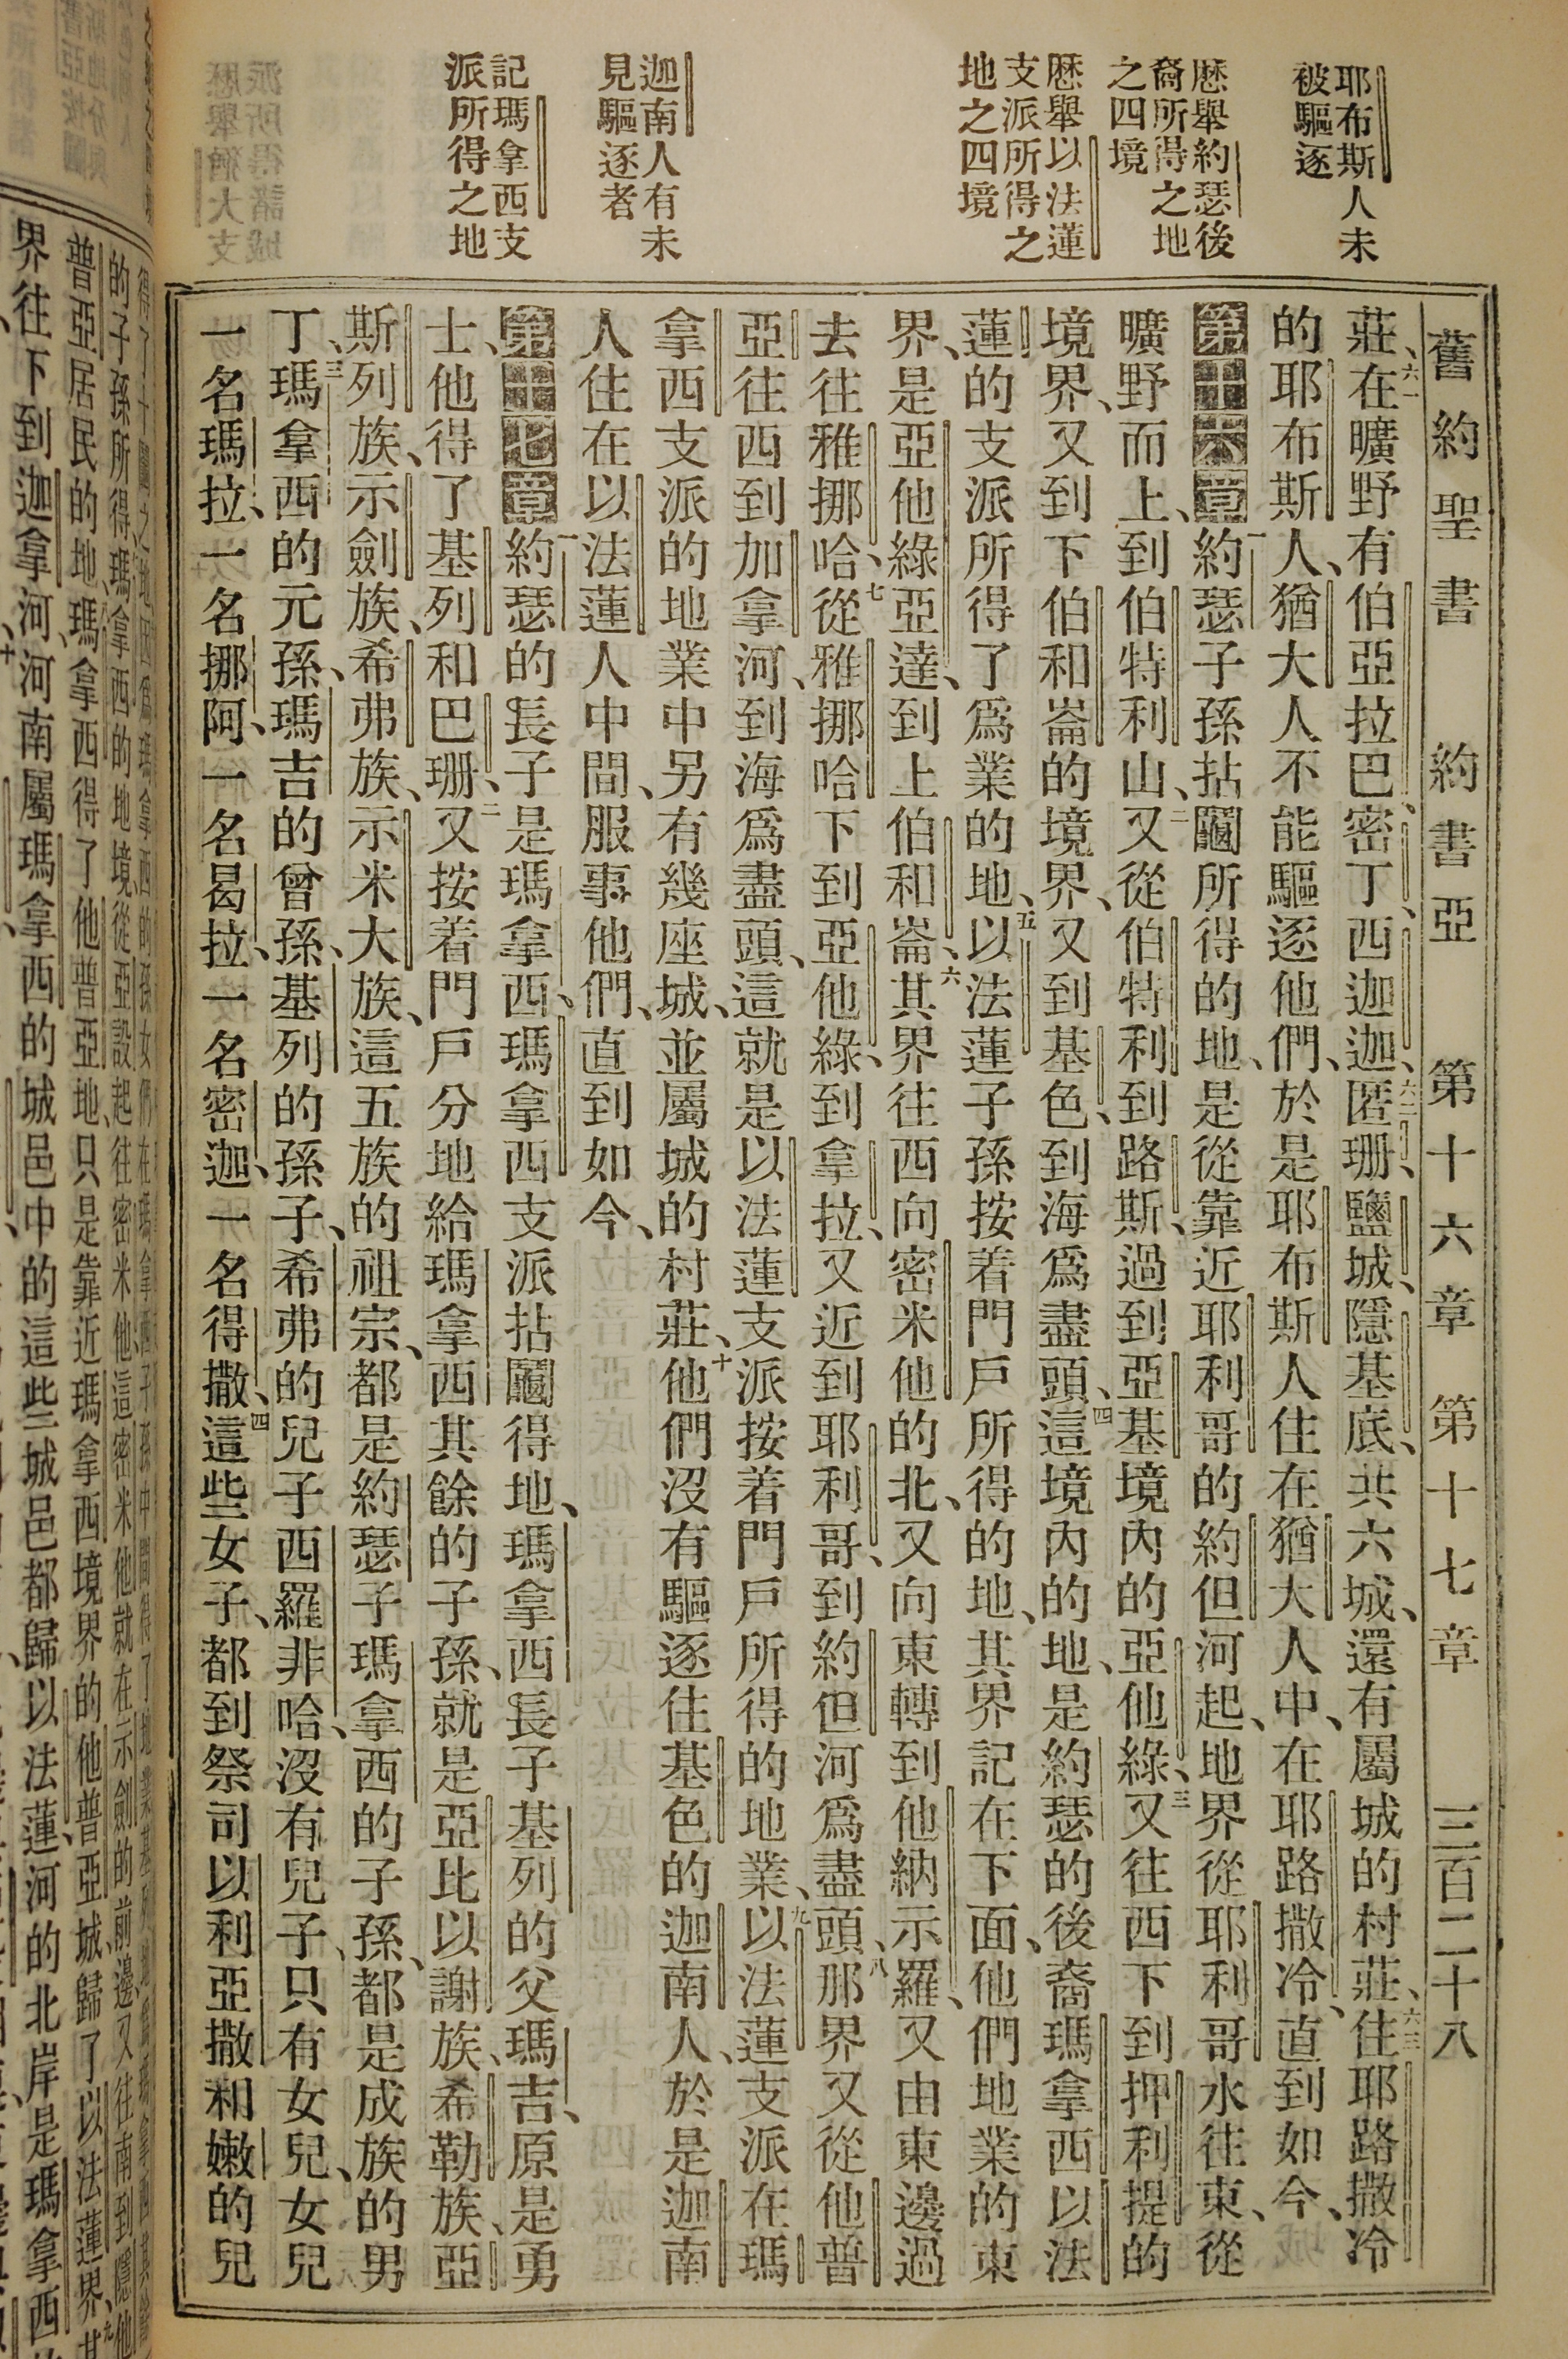 耶布斯人未
被驅逐
歷舉約瑟後
裔所得之地
之四境
歷舉以法蓮
支派所得之
地之四境
迦南人有未
見驅逐者
記瑪拿西支
派所得之地
舊約聖書 約書亞 第十六章 第十七章 三百二十八
莊、六一在曠野有伯亞拉巴、密丁、西迦迦、六二匿珊、鹽城、隱基底、共六城、還有屬城的村莊、六三住耶路撒冷
的耶布斯人、猶大人不能驅逐他們、於是耶布斯人住在猶大人中、在耶路撒冷、直到如今、
第十六章一約瑟子孫拈鬮所得的地、是從靠近耶利哥的約但河起、地界從耶利哥水往東、從
曠野而上、到伯特利山、二又從伯特利到路斯、過到亞基境內的亞他綠、三又往西下到押利提的
境界、又到下伯和崙的境界、又到基色、到海爲盡頭、四這境內的地、是約瑟的後裔瑪拿西以法
蓮的支派所得了爲業的地、五以法蓮子孫按着門戶所得的地、其界記在下面、他們地業的東
界、是亞他綠亞達、到上伯和崙、六其界往西向密米他的北、又向東轉到他納示羅、又由東邊過
去往雅挪哈、七從雅挪哈下到亞他綠、到拿拉、又近到耶利哥、到約但河爲盡頭、八那界又從他普
亞往西到加拿河、到海爲盡頭、這就是以法蓮支派按着門戶所得的地業、九以法蓮支派在瑪
拿西支派的地業中另有幾座城、並屬城的村莊、十他們沒有驅逐住基色的迦南人、於是迦南
人住在以法蓮人中間、服事他們、直到如今、
第十七章一約瑟的長子是瑪拿西、瑪拿西支派拈鬮得地、瑪拿西長子基列的父瑪吉、原是勇
士、他得了基列和巴珊、二又按着門戶分地給瑪拿西其餘的子孫、就是亞比以謝族、希勒族、亞
斯列族、示劍族、希弗族、示米大族、這五族的祖宗、都是約瑟子瑪拿西的子孫、都是成族的男
丁、三瑪拿西的元孫、瑪吉的曾孫、基列的孫子、希弗的兒子西羅非哈、沒有兒子、只有女兒、女兒
一名瑪拉、一名挪阿、一名曷拉、一名密迦、一名得撒、四這些女子、都到祭司以利亞撒和嫩的兒